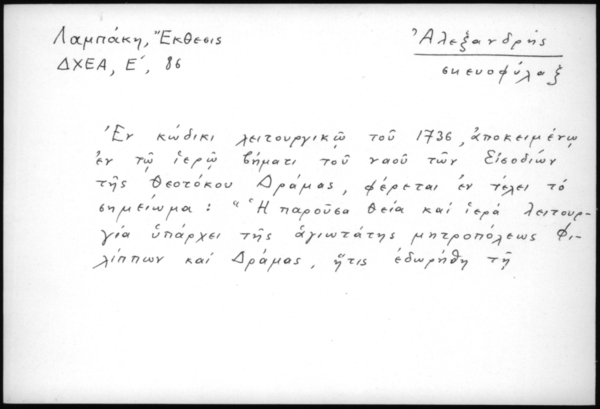 Λαμπάκη, Ἔκθεσις
ΔΧΕΑ, Ε΄, 86
Ἀλεξανδρής
σκευοφύλαξ
Ἐν κώδικι λειτουργικῷ τοῦ 1736, ἀποκειμένῳ
ἐν τῷ ἱερῷ βήματι τοῦ ναοῦ τῶν Εἰσοδίων
τῆς Θεοτόκου Δράμας, φέρεται ἐν τέλει τό
σημείωμα: "Ἡ παροῦσα θεία καί ἱερά λειτουρ-
γία ὑπάρχει τῆς ἁγιωτάτης μητροπόλεως Φι-
λίππων καί Δράμας, ἥτις ἐδωρήθη τῇ